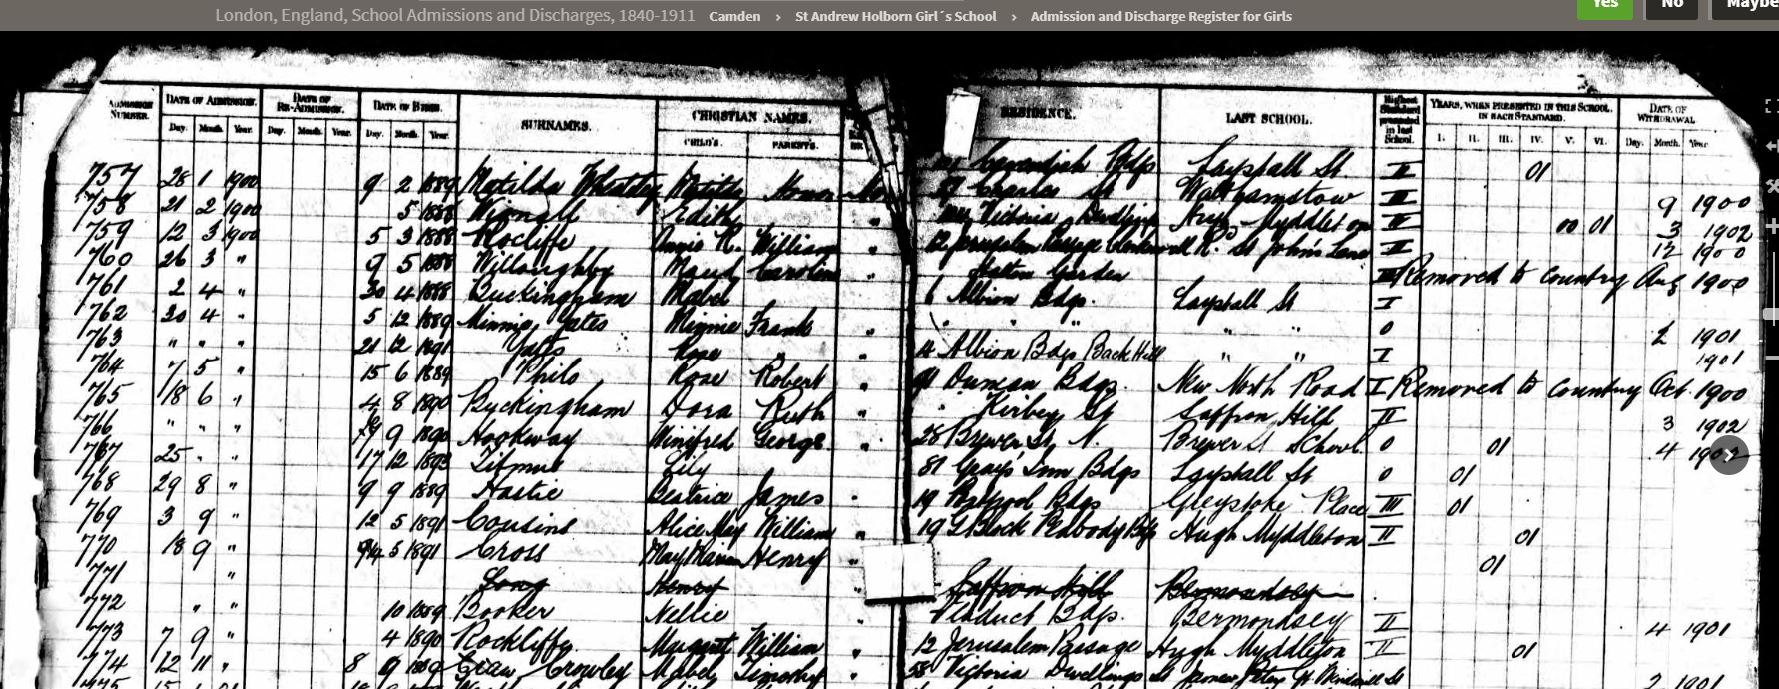 London, England, School Admissions and Discharges, 1840-1911 Camden › St Andrew Holborn Girl´s School › Admission and Discharge Register for Girls Yes No Maybe
ADMISSION NUMBER. DATE OF ADMISSION. DATE OF RE-ADMISSION. DATE OF BIRTH. SURNAMES. CHRISTIAN NAMES. RESIDENCE. LAST SCHOOL. Highest Standard presented in last School. YEARS, WHEN PRESENTED IN THIS SCHOOL, IN EACH STANDARD. DATE OF WITHDRAWAL
Day. Month. Year. Day. Month. Year. Day. Month. Year. CHILD'S. PARENTS. I. II. III. IV. V. VI. Day. Month. Year
757 28 1 1900 9 2 1889 Matilda Wheatley Matilda Honor Cavendish Bdgs Laystall St. II 01
758 21 2 1900 5 1888 Edith " Charles St Walthamstow III 9 1900
759 12 3 1900 5 3 1888 Rocliffe Annie R. William " Victoria Dwellings Hugh Myddelton III 00 01 3 1902
760 26 3 " 9 5 1888 Willoughby Maud Caroline " 12 Jerusalem Passage Clerkenwell R. St John's Lane II 12 1900
761 2 4 " 30 4 1888 Buckingham Mabel Hatton Garden III Removed to country Aug 1900
762 20 4 " 5 12 1889 Minnie Yates Minnie Frank " 6 Albion Bdgs. Laystall St I
763 " " " 21 12 1891 Yates Rose " " " " " " 0 2 1901
764 7 5 " 15 6 1889 Philo Rose Robert " 14 Albion Bdgs Back Hill " " I 1901
765 18 6 " 4 8 1890 Buckingham Dora Ruth " 91 Duncan Bdgs. New North Road I Removed to country Oct. 1900
766 " " " 9 1890 Hookway Winifred George. " " Kirbey St Saffron Hill II 3 1902
767 25 " " 17 12 1893 Titmus Lily 28 Brewer St, N. Brewer St School 0 01 4 1902
768 29 8 " 9 9 1889 Hastie Beatrice James " 81 Grays' Inn Bdgs Laystall St 0 01
769 3 9 " 12 5 1891 Cousins Alice May William " 19 Bdgs Greystoke Place III 01
770 18 9 " 5 1891 Cross May Henry " 19 G Block Peabody Bdgs Hugh Myddelton II 01
771 " Long Henry " Saffron Hill Bermondsey 01
772 " " 10 1889 Booker Nellie " Viaduct Bdgs. Bermondsey II
773 7 9 " 4 1890 Rockliffe Margaret William " 12 Jerusalem Passage Hugh Myddelton II 4 1901
774 12 11 " 8 9 1889 Crowley Mabel Timothy " 58 Victoria Dwellings St James, Peter St Windmill St 01
775 2 1901